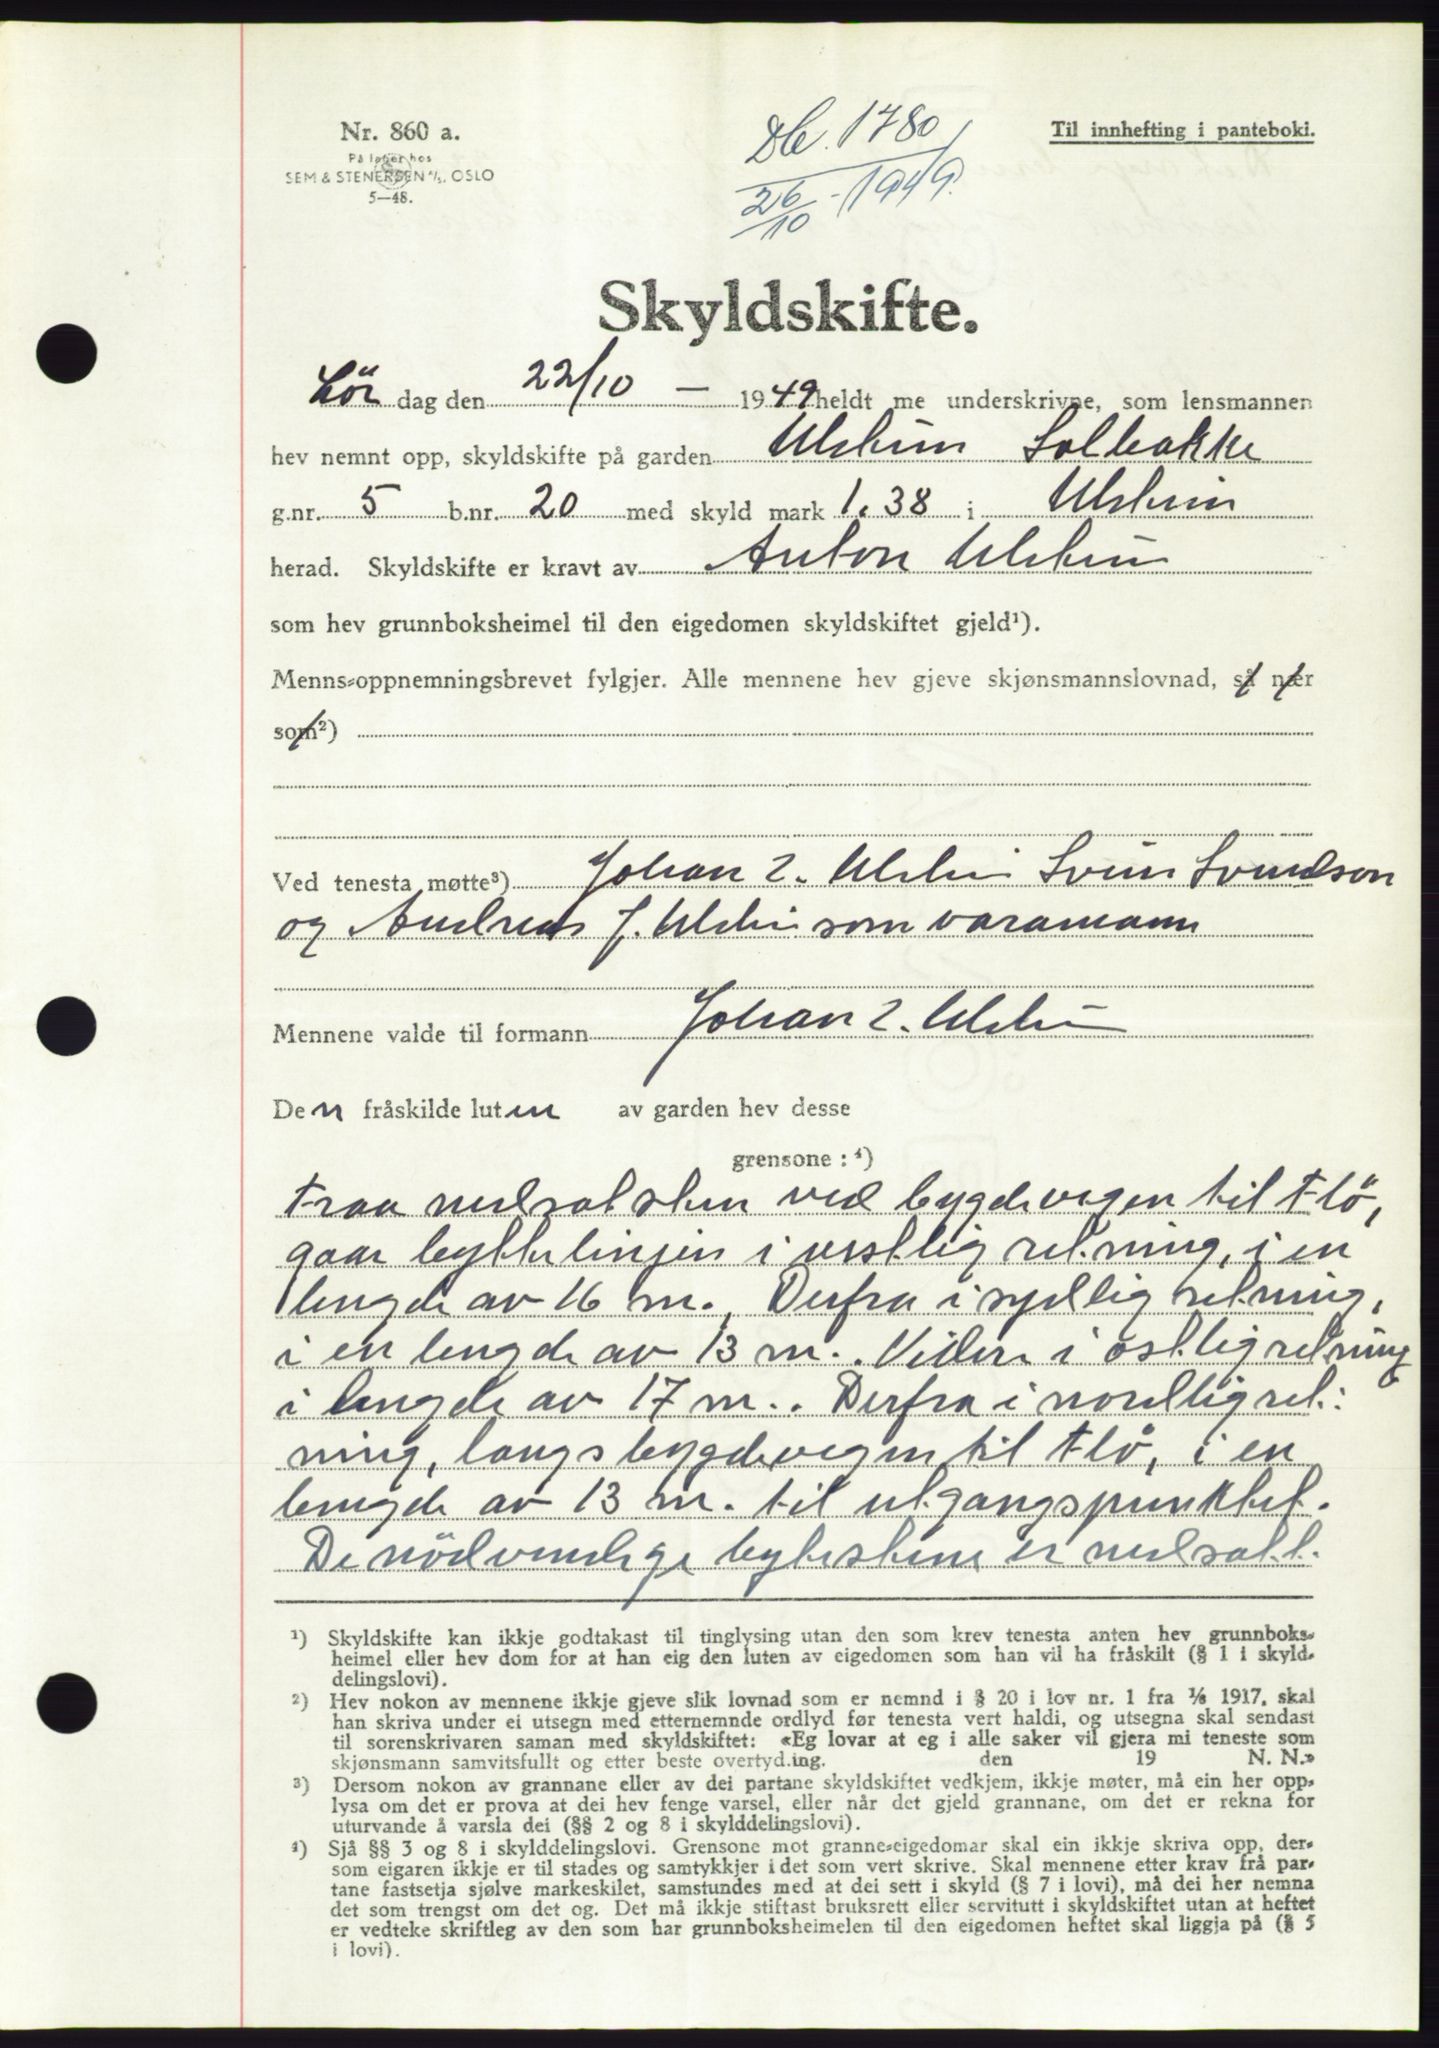 Nr. 860 a.
På lager hos
SEM & STENERSEN A/S, OSLO
5—48.
Db. 1780/
26/10 - 1949.
Til innhefting i panteboki.
Skyldskifte.
Lör dag den 22/10 — 1949 heldt me underskrivne, som lensmannen
hev nemnt opp, skyldskifte på garden Ulstein Solbakke
g.nr. 5 b.nr. 20 med skyld mark 1.38 i Ulstein
herad. Skyldskifte er kravt av Anton Ulstein
som hev grunnboksheimel til den eigedomen skyldskiftet gjeld¹).
Menns-oppnemningsbrevet fylgjer. Alle mennene hev gjeve skjønsmannslovnad, så nær
som²)
Ved tenesta møtte³) Johan Z. Ulstein Svein Svendson
og Andreas J. Ulstein som varamann
Mennene valde til formann Johan Z. Ulstein
Den fråskilde luten av garden hev desse
grensone: ⁴)
Fraa nedsat sten ved bygdevegen til Flö,
gaar byttelinjen i vestlig retning, i en
lengde av 16 m., Derfra i sydlig retning,
i en lengde av 13 m.. Videre i östlig retning
i lengde av 17 m.. Derfra i nordlig ret:
ning, langs bygdevegen til Flö, i en
lengde av 13 m. til utgangspunktet.
De nödvendige bytestene er nedsatt.
¹) Skyldskifte kan ikkje godtakast til tinglysing utan den som krev tenesta anten hev grunnboks-
heimel eller hev dom for at han eig den luten av eigedomen som han vil ha fråskilt (§ 1 i skyld-
delingslovi).
²) Hev nokon av mennene ikkje gjeve slik lovnad som er nemnd i § 20 i lov nr. 1 fra 1/6 1917, skal
han skriva under ei utsegn med etternemnde ordlyd før tenesta vert haldi, og utsegna skal sendast
til sorenskrivaren saman med skyldskiftet: «Eg lovar at eg i alle saker vil gjera mi teneste som
skjønsmann samvitsfullt og etter beste overtyd.ing. den 19 N. N.»
³) Dersom nokon av grannane eller av dei partane skyldskiftet vedkjem, ikkje møter, må ein her opp-
lysa om det er prova at dei hev fenge varsel, eller når det gjeld grannane, om det er rekna for
uturvande å varsla dei (§§ 2 og 8 i skylddelingslovi).
⁴) Sjå §§ 3 og 8 i skylddelingslovi. Grensone mot granne-eigedomar skal ein ikkje skriva opp, der-
som eigaren ikkje er til stades og samtykkjer i det som vert skrive. Skal mennene etter krav frå par-
tane fastsetja sjølve markeskilet, samstundes med at dei sett i skyld (§ 7 i lovi), må dei her nemna
det som trengst om det og. Det må ikkje stiftast bruksrett eller servitutt i skyldskiftet utan at heftet
er vedteke skriftleg av den som har grunnboksheimelen til den eigedomen heftet skal liggja på (§ 5
i lovi).